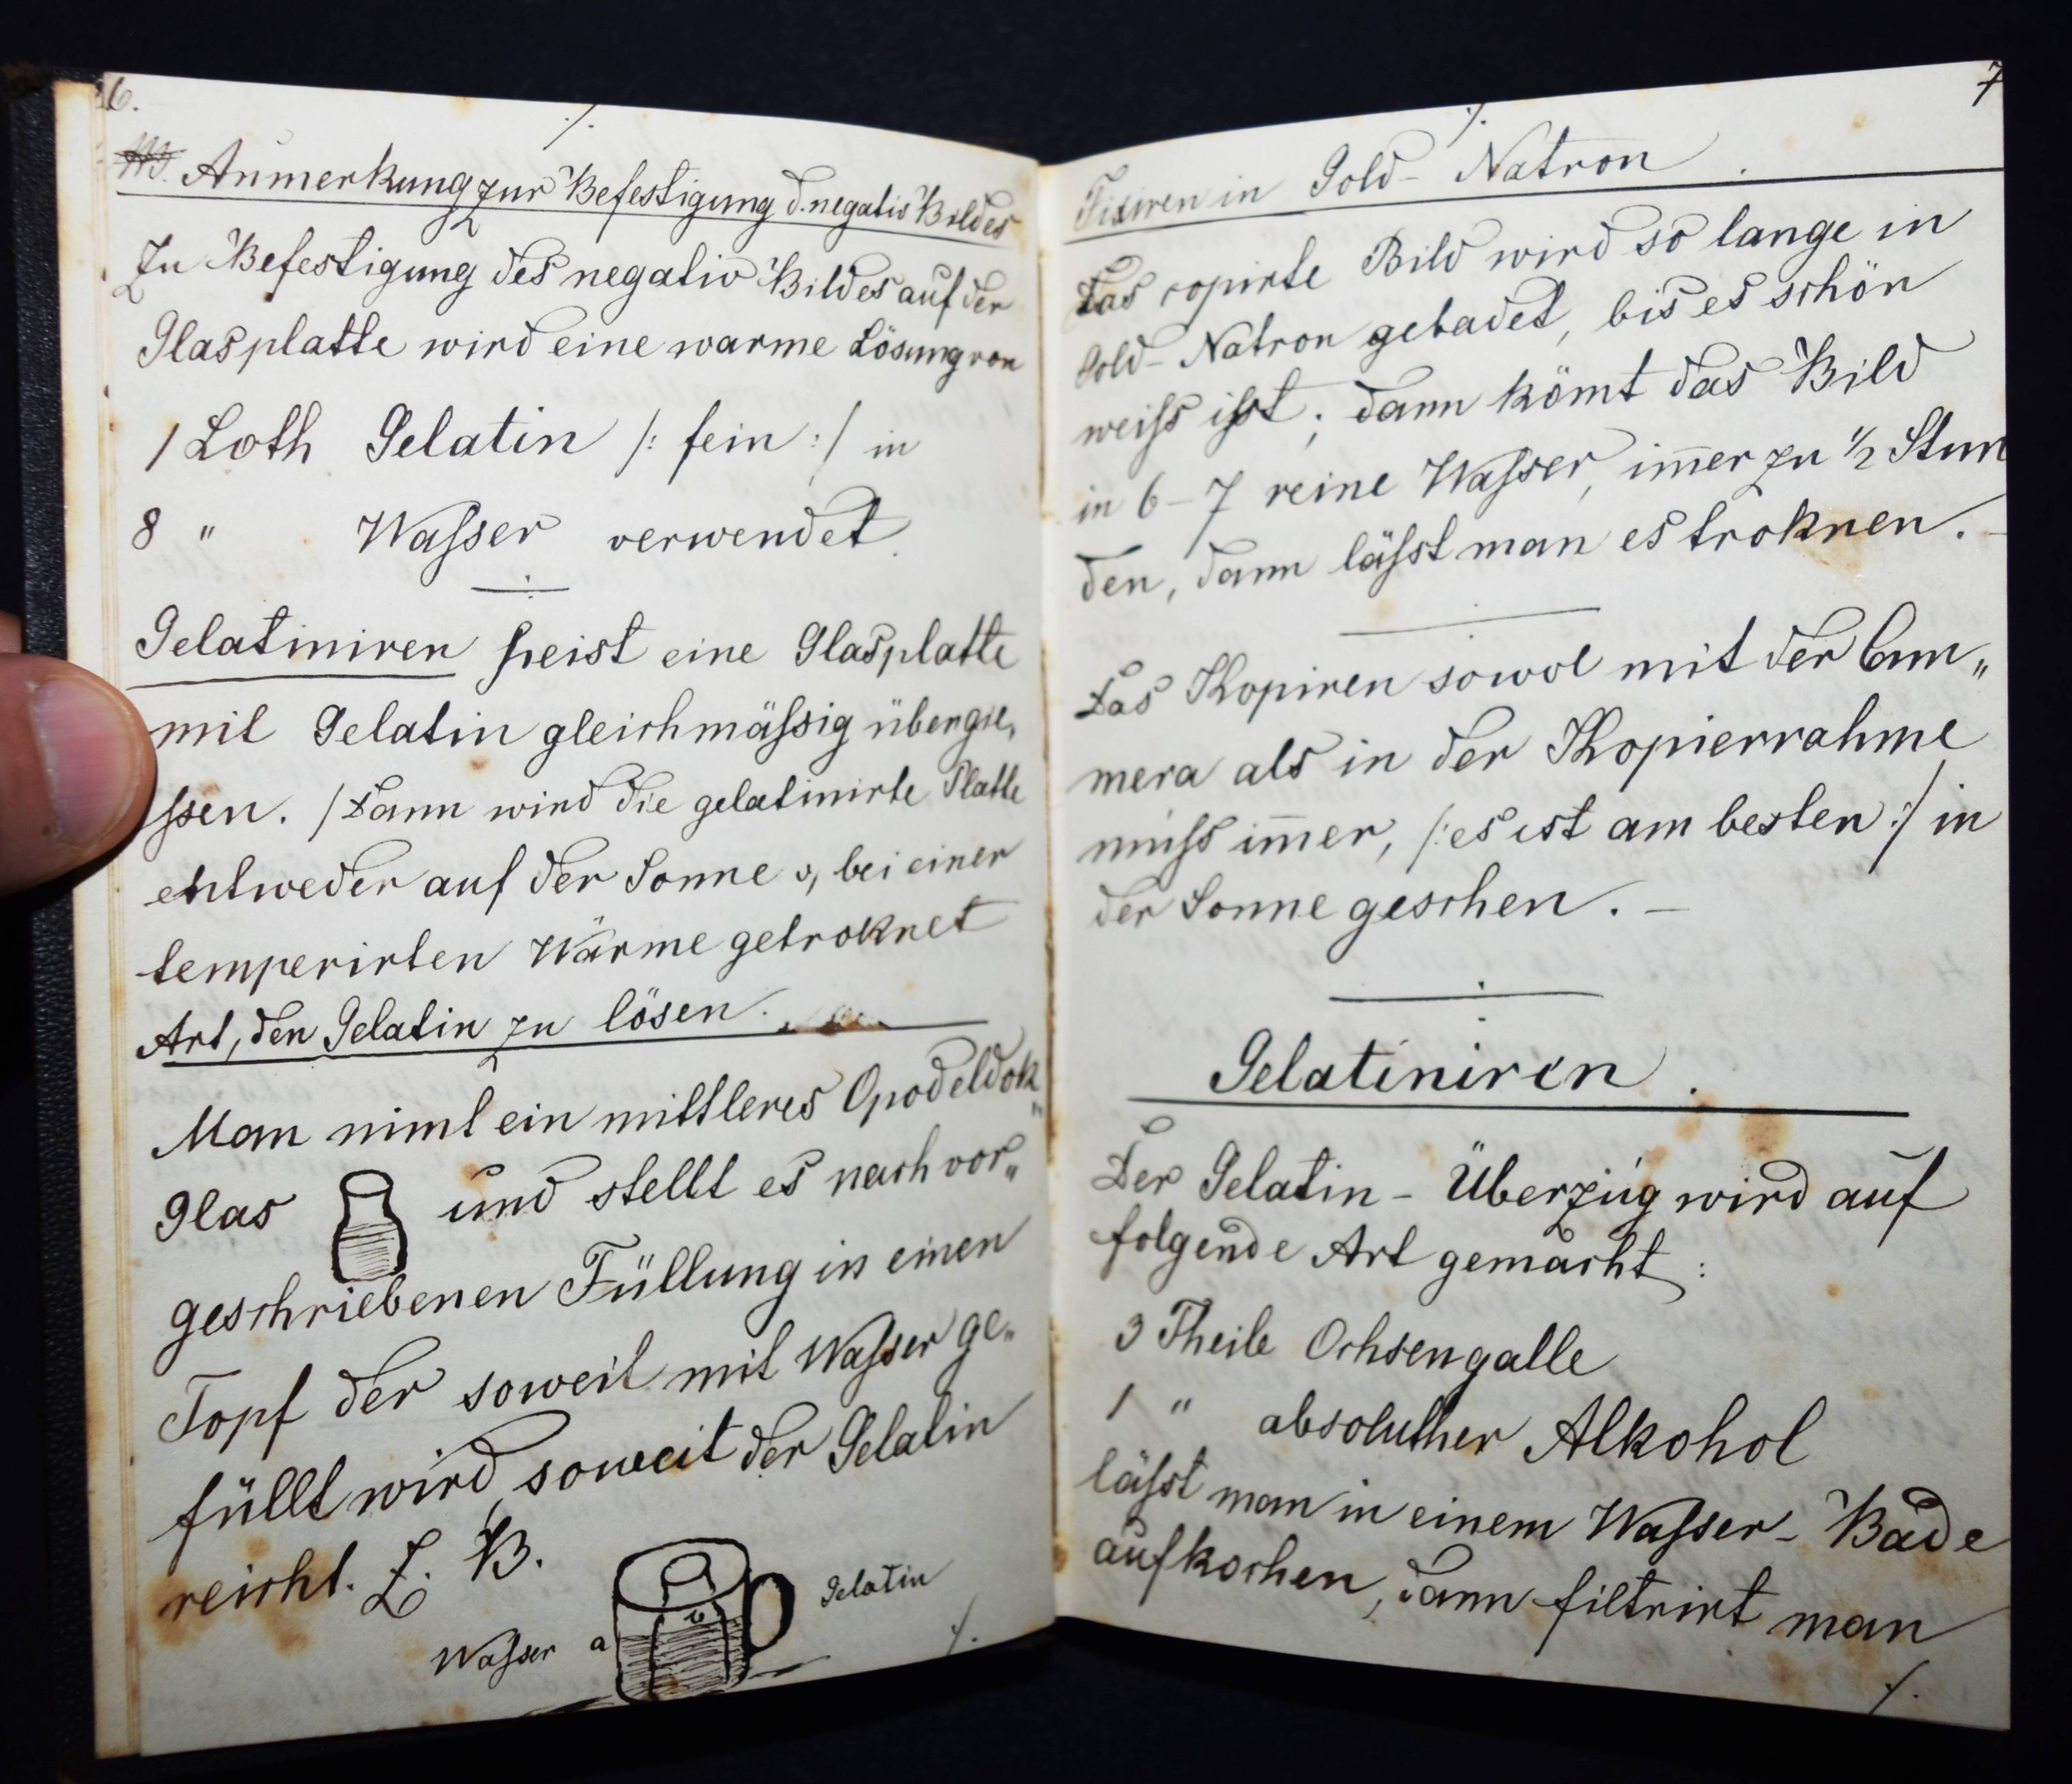 6.
./.
Anmerkung zur Befestigung d. negativ Bildes
Zu Befestigung des negativ Bildes auf der
Glasplatte wird eine warme Lösung von
1 Loth Gelatin /: fein :/ in
8 " Wasser verwendet.
Gelatiniren heist eine Glasplatte
mit Gelatin gleichmässig übergie„
ssen. / Dann wird die gelatinirte Platte
entweder auf der Sonne o, bei einer
temperirten Wärme getroknet
Art, den Gelatin zu lösen.
Man nimt ein mittleres Opodeldok„
Glas und stellt es nach vor„
geschriebenen Füllung in einen
Topf der soweit mit Wasser ge„
füllt wird, soweit der Gelatin
reicht. Z. B.
Gelatin
Wasser a
./.
7
./.
Fixiren in Gold- Natron.
Das copirte Bild wird so lange in
Gold- Natron gebadet, bis es schön
weiss isst; dann kömt das Bild
in 6-7 reine Wasser, im̄er zu 1/2 Stun
den, dann lässt man es troknen. -
Das Kopiren sowol mit der Cam„
mera als in der Kopierrahme
muss im̄er, /: es ist am besten :/ in
der Sonne geschen. -
Gelatiniren.
Der Gelatin - Überzug wird auf
folgende Art gemacht:
3 Theile Ochsengalle
1 " absoluther Alkohol
lässt man in einem Wasser- Bade
aufkochen, dann filtrirt man
./.